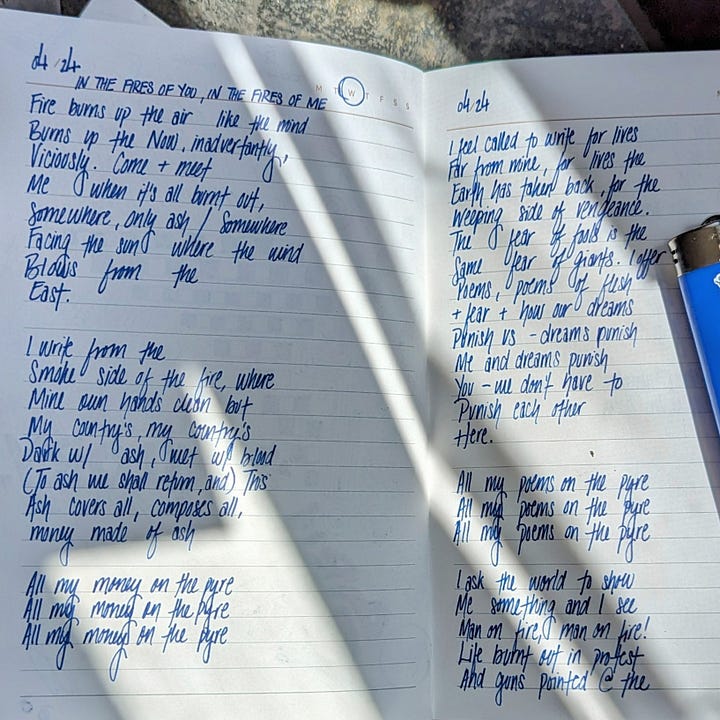 04/24
IN THE FIRES OF YOU, IN THE FIRES OF ME
M T W T F S S
Fire burns up the air like the mind
Burns up the Now, inadvertantly,
Viciously. Come + meet
Me when it's all burnt out,
Somewhere, only ash / Somewhere
Facing the sun where the wind
Blows from the
East.
I write from the
Smoke side of the fire, where
Mine own hands clean but
My country's, my country's
Dark w/ ash, wet w/ blood
(To ash we shall return, and) This
Ash covers all, composes all,
money made of ash
All my money on the pyre
All my money on the pyre
All my money on the pyre
04/24
I feel called to write for lives
Far from mine, for lives the
Earth has taken back, for the
Weeping side of vengeance.
The fear of fools is the
Same fear of giants. I offer
Poems, poems of flesh
+ fear + how our dreams
Punish us - dreams punish
Me and dreams punish
You - we don't have to
Punish each other
Here.
All my poems on the pyre
All my poems on the pyre
All my poems on the pyre
I ask the world to show
Me something and I see
Man on fire, man on fire!
Life burnt out in protest
And guns pointed @ the